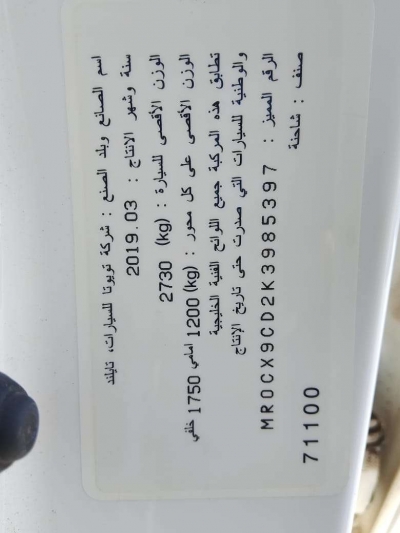 اسم الصانع وبلد الصنع : شركة تويوتا للسيارات، تايلند
سنة وشهر الانتاج : 2019.03
الوزن الأقصى للسيارة : (kg) 2730
الوزن الأقصى على كل محور : (kg) 1200 امامي 1750 خلفي
تطابق هذه المركبة جميع اللوائح الفنية الخليجية
والوطنية للسيارات التي صدرت حتى تاريخ الإنتاج
الرقم المميز : MR0CX9CD2K3985397
صنف : شاحنة
71100